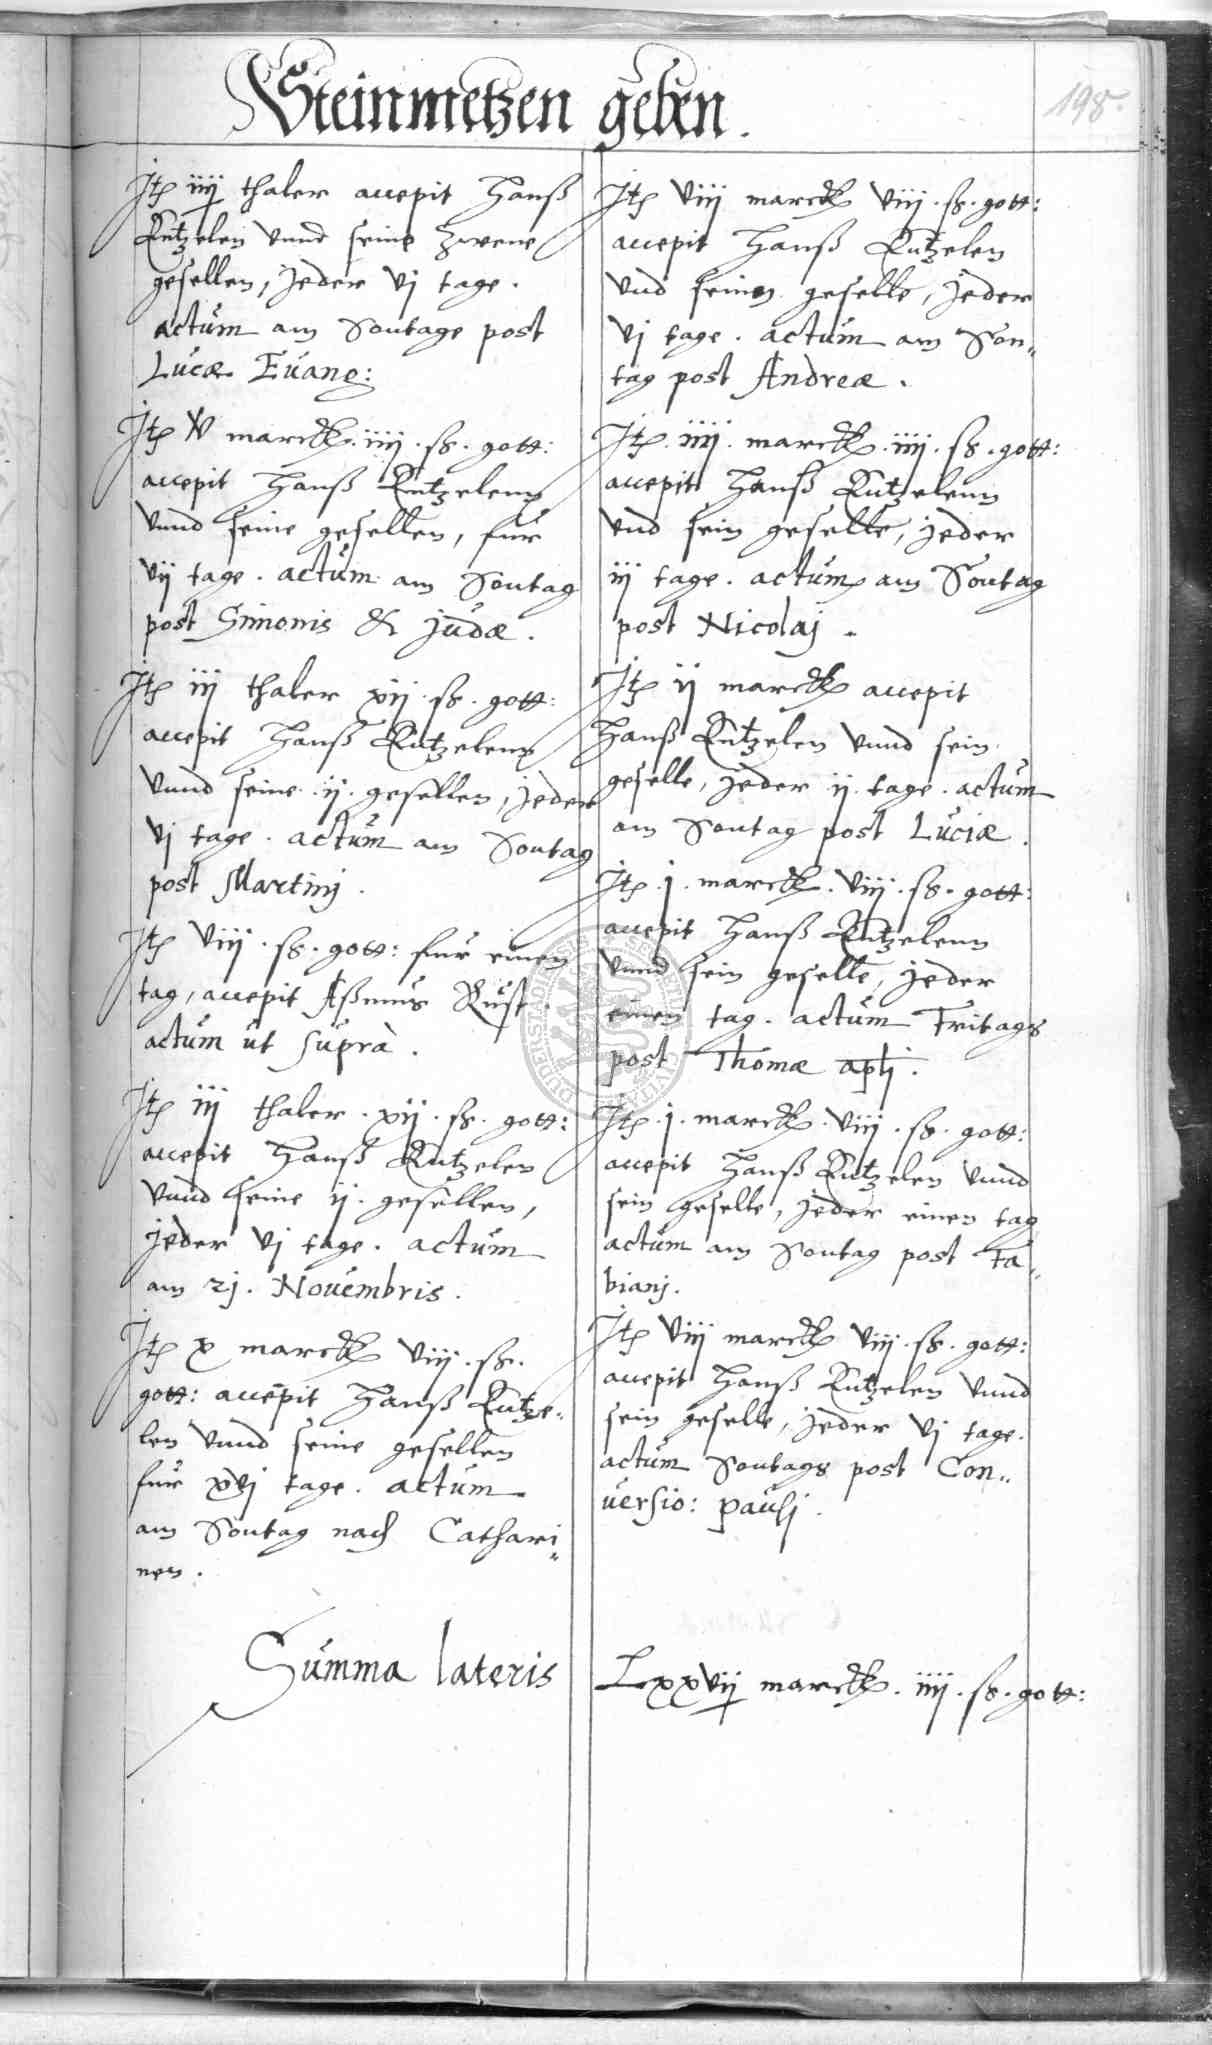 Steinmetzen geben.
198.
Itz iiij thaler accepit Hanß
Kutzelen vnnd seine zwene
gesellen, jeder vj tage.
actum am Sontage post
Lucæ Euang:
Itz V marck. iiij. ß. gott:
accepit Hanß Kutzelenn
vnnd seine gesellen, fur
vij tage. actum am Sontag
post Simonis & Judæ.
Itz iij thaler xij. ß. gott:
accepit Hanß Kutzelenn
vnnd seine. ij. gesellen, jeder
vj tage. actum am Sontag
post Martinj.
Itz viij. ß. gott: fur einen
tag, accepit Aßmus Rust.
actum ut suprà.
Itz iij thaler. xij. ß. gott:
accepit Hanß Kutzelen
vnnd seine ij. gesellen,
jeder vj tage. actum
am 21. Nouembris.
Itz x marck viij. ß.
gott: accepit Hanß Kutze-
len vnnd seine gesellen
fur xvj tage. actum
am Sontag nach Cathari-
nen.
Itz viij marck viij. ß. gott:
accepit Hanß Kutzelen
vnd seinen geselle, jeder
vj tage. actum am Son-
tag post Andreæ.
Itz. iiij. marck. iiij. ß. gott:
accepit Hanß Kutzelenn
vnd sein geselle, jeder
iij tage. actum am Sontag
post Nicolaj.
Itz ij marck accepit
Hanß Kutzelen vnnd sein
geselle, jeder ij. tage. actum
am Sontag post Luciæ.
Itz. j. marck. viij. ß. gott:
accepit Hanß Kutzelenn
vnnd sein geselle, jeder
einen tag. actum Fritags
post Thomæ aptj.
Itz. j. marck. viij. ß. gott:
accepit Hanß Kutzelen vnnd
sein geselle, jeder einen tag
actum am Sontag post Fa-
bianj.
Itz viij marck viij. ß. gott:
accepit Hanß Kutzelen vnnd
sein geselle, jeder vj tage.
actum Sontags post Con-
uersio: paulj.
Summa lateris Lxxvij marck. iiij. ß. gott: